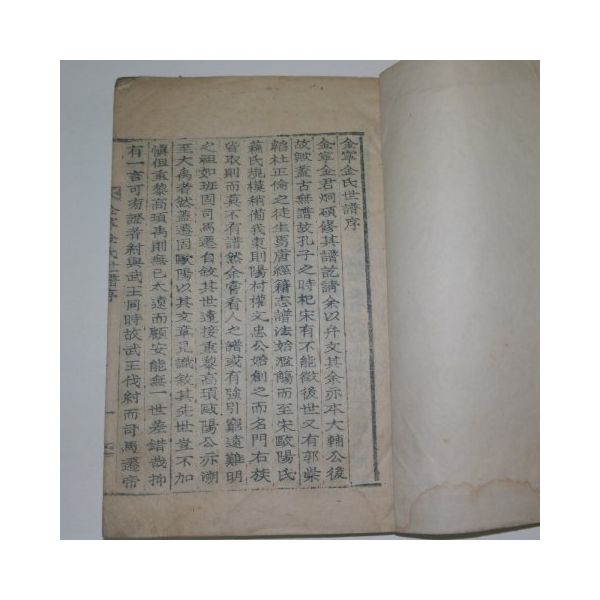 金寧金氏世譜序
金寧金君炯碩修其譜訖請余以弁文其余亦本大輔公後
故歟蓋古無譜故孔子之時杞宋有不能徵後世又有郭崇
韜杜正倫之徒生焉唐經籍志譜法始濫觴而至宋歐陽氏
蘇氏規模稍備我東則陽村權文忠公始創之而名門右族
皆取則而莫不有譜然余嘗看人之譜或有強引窮遠難明
之祖如班固司馬遷自敘其世遠接重黎高頊歐陽公亦溯
至大禹者然蓋遷固歐陽以其文章見識敘其先世豈不加
愼但重黎高頊禹則無已太遠而顧安能無一世差錯哉抑
有一言可爲證者紂與武王同時故武王伐紂而司馬遷帝
金寧金氏世譜序